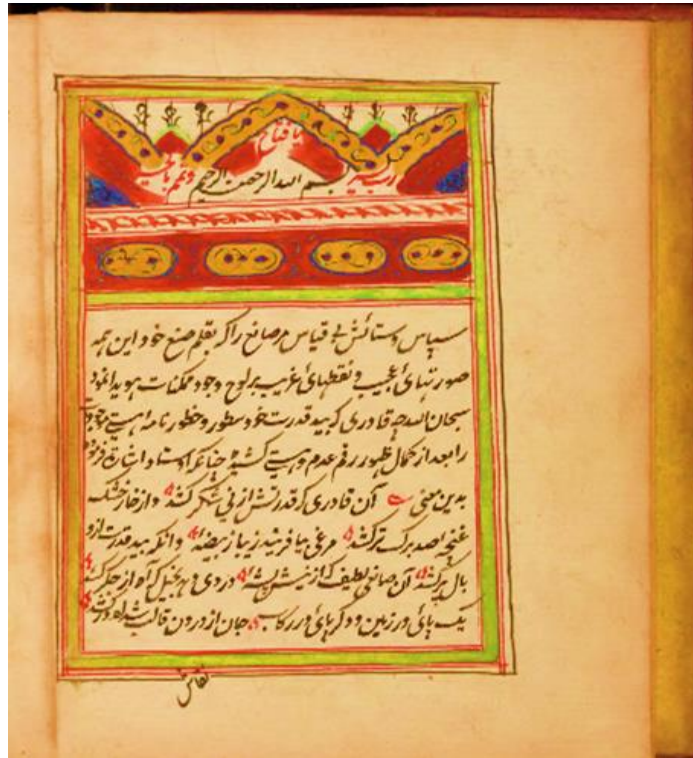 یا فتاح
رب یسر بسم الله الرحمن الرحیم و تمم بالخیر
سپاس و ستائش بی قیاس مر صانع را که بقلم صنع خود این همه
صورتهائ عجیب و نقطهائ غریب بر لوح وجود ممکنات هویدا نمود
سبحان الله چه قادری که بید قدرت خود سطور و خطور نامه هستی موجودات
را بعد از کمال ظهور رقم عدم و نیستی کشیده چنانکه استاد اشاره فرموده
بدین معنی آن قادری که قدرتش از نی شکر کشد و از خار خشک
غنچه صد برک تر کشد مرغی بیافریند زیبا ز بیضه وانکه بید قدرت ازو
بال و پر کشد آن صانعی لطیف که از نیش پشه دردی دهد بخیل که آه از جکر کشد
یک پائ در زمین و دکر پائ در رکاب جان از درون قالب